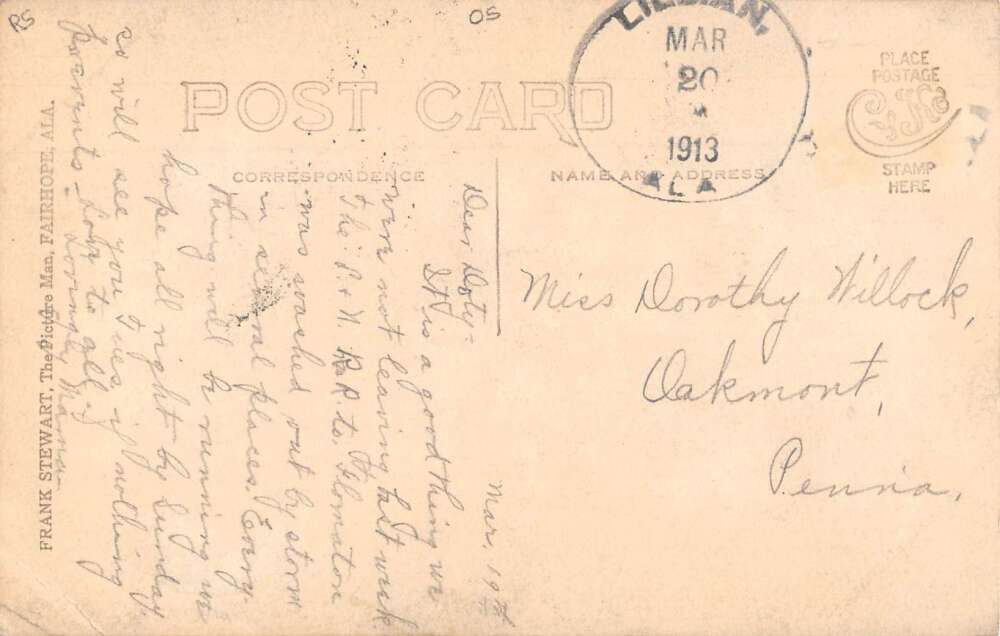 RS
OS
POST CARD
CORRESPONDENCE
NAME AND ADDRESS
LILLIAN,
MAR
20
1913
ALA
PLACE
POSTAGE
STAMP
HERE
Mar. 19th
Dear Doty-
It is a good thing we
were not leaving last week
The P. & N. RR to Flomaton
was washed out by storm
in several places. Every
thing will be running we
hope all right by Sunday.
so will see you Tues if nothing
prevents - Love to all.
Lovingly Mama
FRANK STEWART, The Picture Man, FAIRHOPE, ALA.
Miss Dorothy Willock,
Oakmont,
Penna,